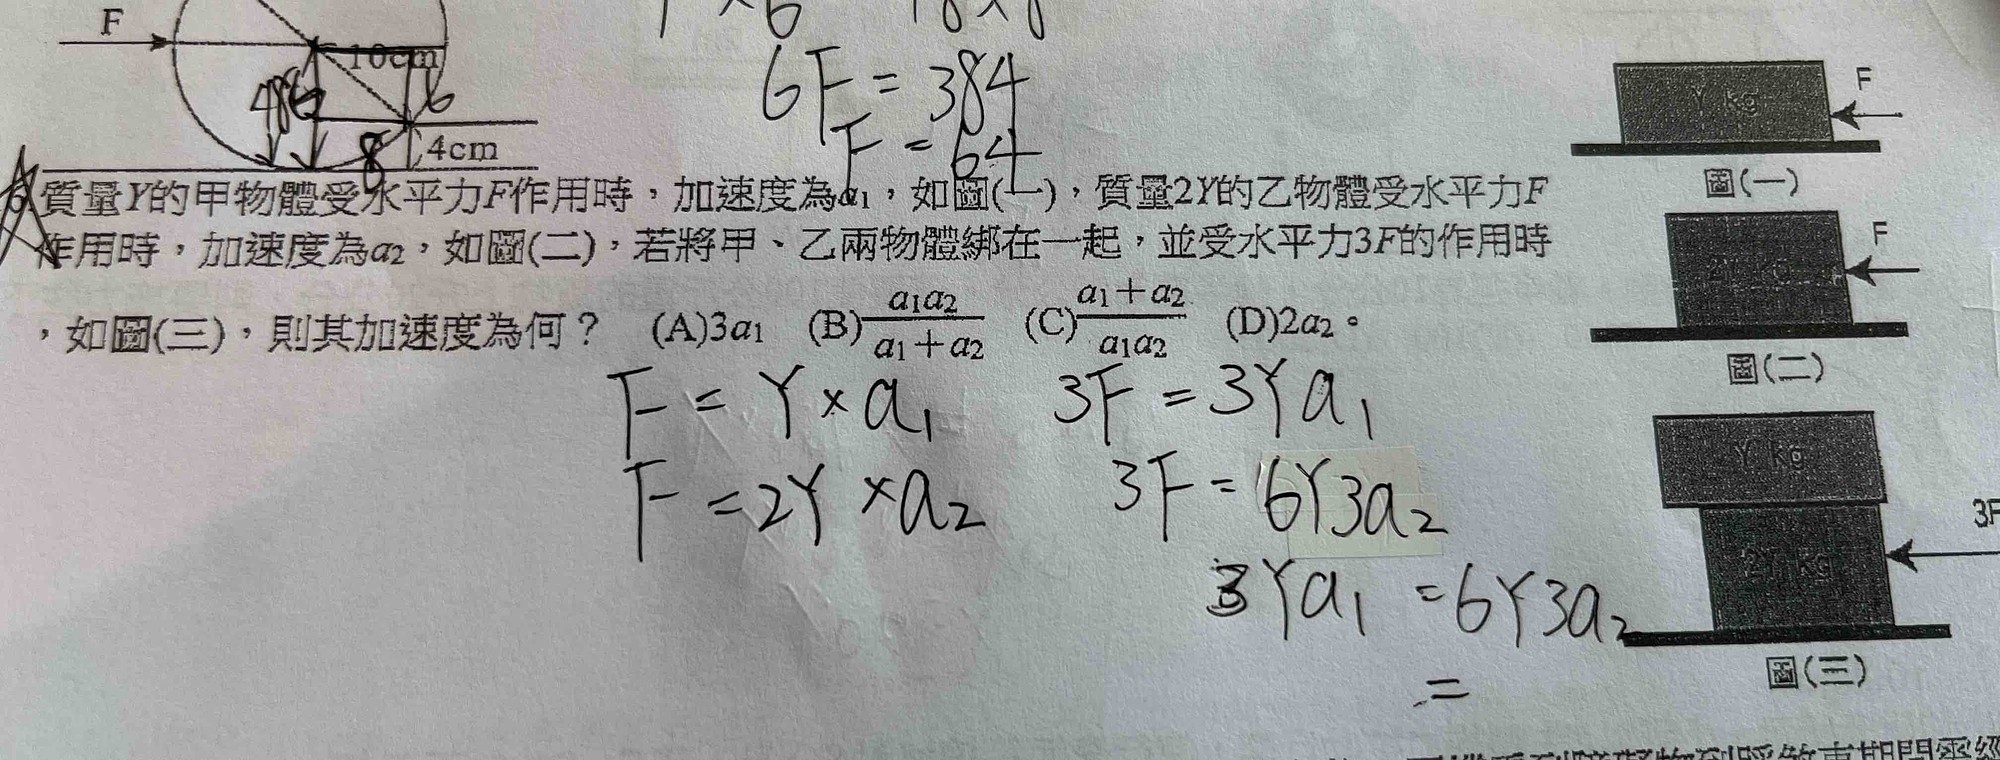 F
10cm
6
8
4cm
6F = 384
F = 64
質量Y的甲物體受水平力F作用時，加速度為a₁，如圖(一)，質量2Y的乙物體受水平力F
作用時，加速度為a₂，如圖(二)，若將甲、乙兩物體綁在一起，並受水平力3F的作用時
，如圖(三)，則其加速度為何？ (A)3a₁ (B) a₁a₂/(a₁+a₂) (C) (a₁+a₂)/a₁a₂ (D)2a₂。
F = Y × a₁
3F = 3Ya₁
F = 2Y × a₂
3F = 6Y3a₂
3Ya₁ = 6Y3a₂
=
Y kg
F
圖(一)
2Y kg
F
圖(二)
Y kg
2Y kg
3F
圖(三)